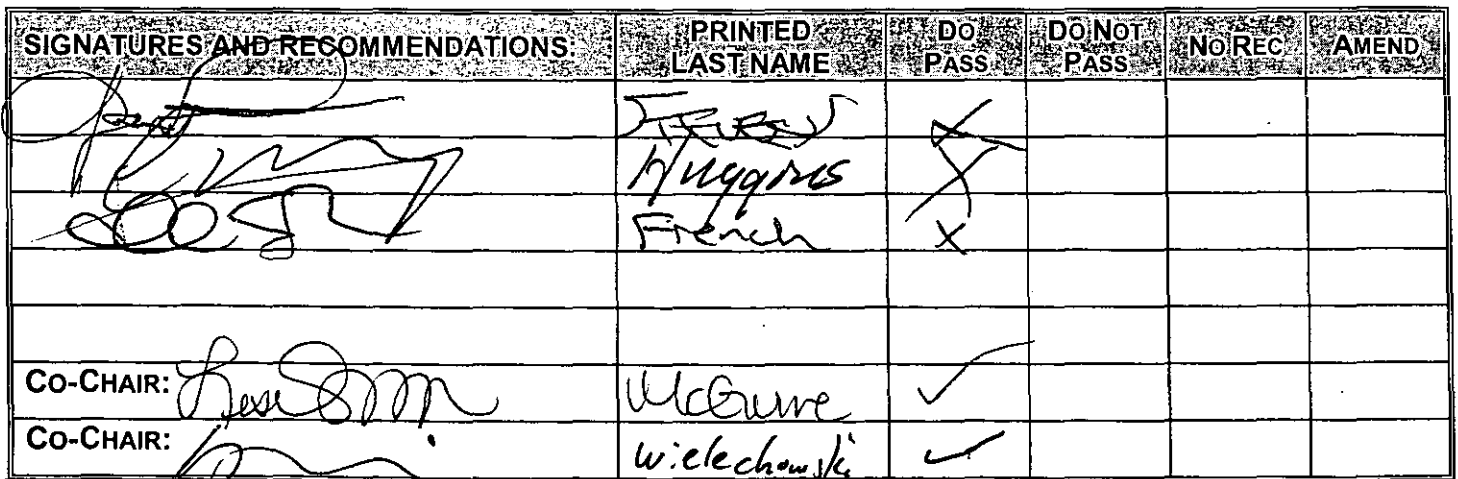 SIGNATURES AND RECOMMENDATIONS: PRINTED LAST NAME DO PASS DO NOT PASS NO REC AMEND
X
Huggins X
French X
CO-CHAIR: McGuire ✓
CO-CHAIR: Wielechowski ✓